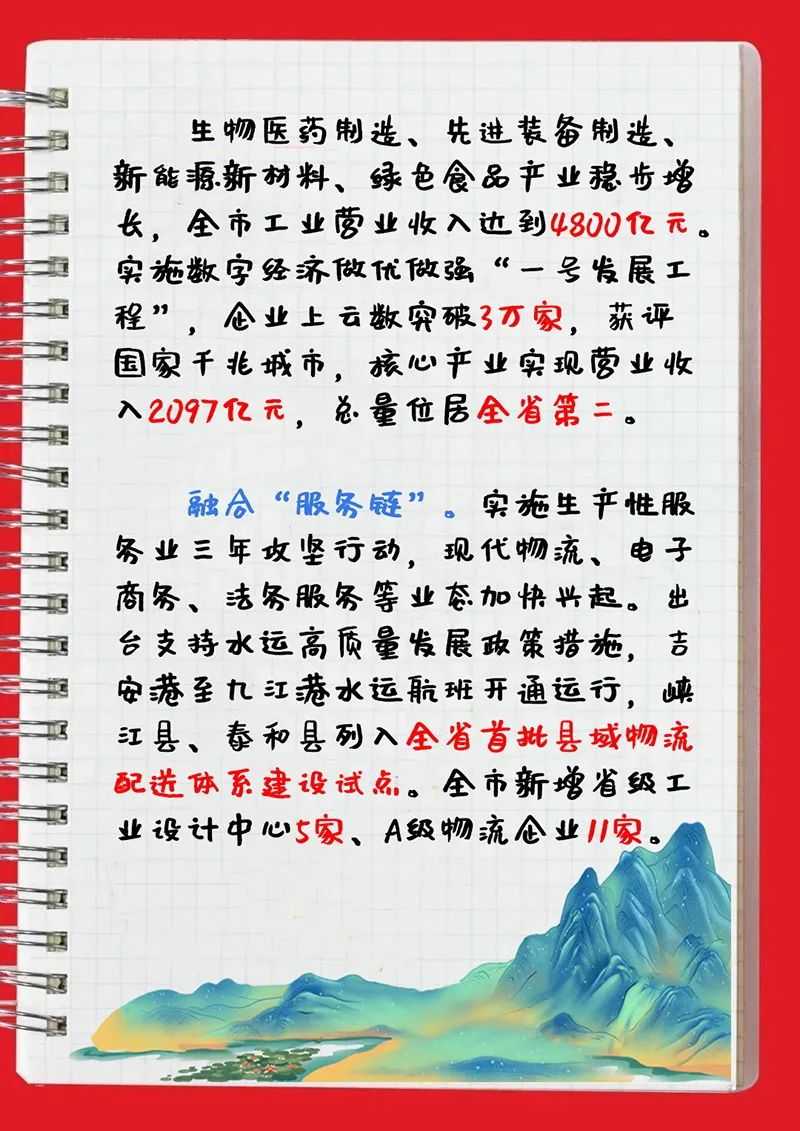 生物医药制造、先进装备制造、
新能源新材料、绿色食品产业稳步增
长，全市工业营业收入达到4800亿元。
实施数字经济做优做强“一号发展工
程”，企业上云数突破3万家，获评
国家千兆城市，核心产业实现营业收
入2097亿元，总量位居全省第二。
融合“服务链”。实施生产性服
务业三年攻坚行动，现代物流、电子
商务、法务服务等业态加快兴起。出
台支持水运高质量发展政策措施，吉
安港至九江港水运航班开通运行，峡
江县、泰和县列入全省首批县域物流
配送体系建设试点。全市新增省级工
业设计中心5家、A级物流企业11家。